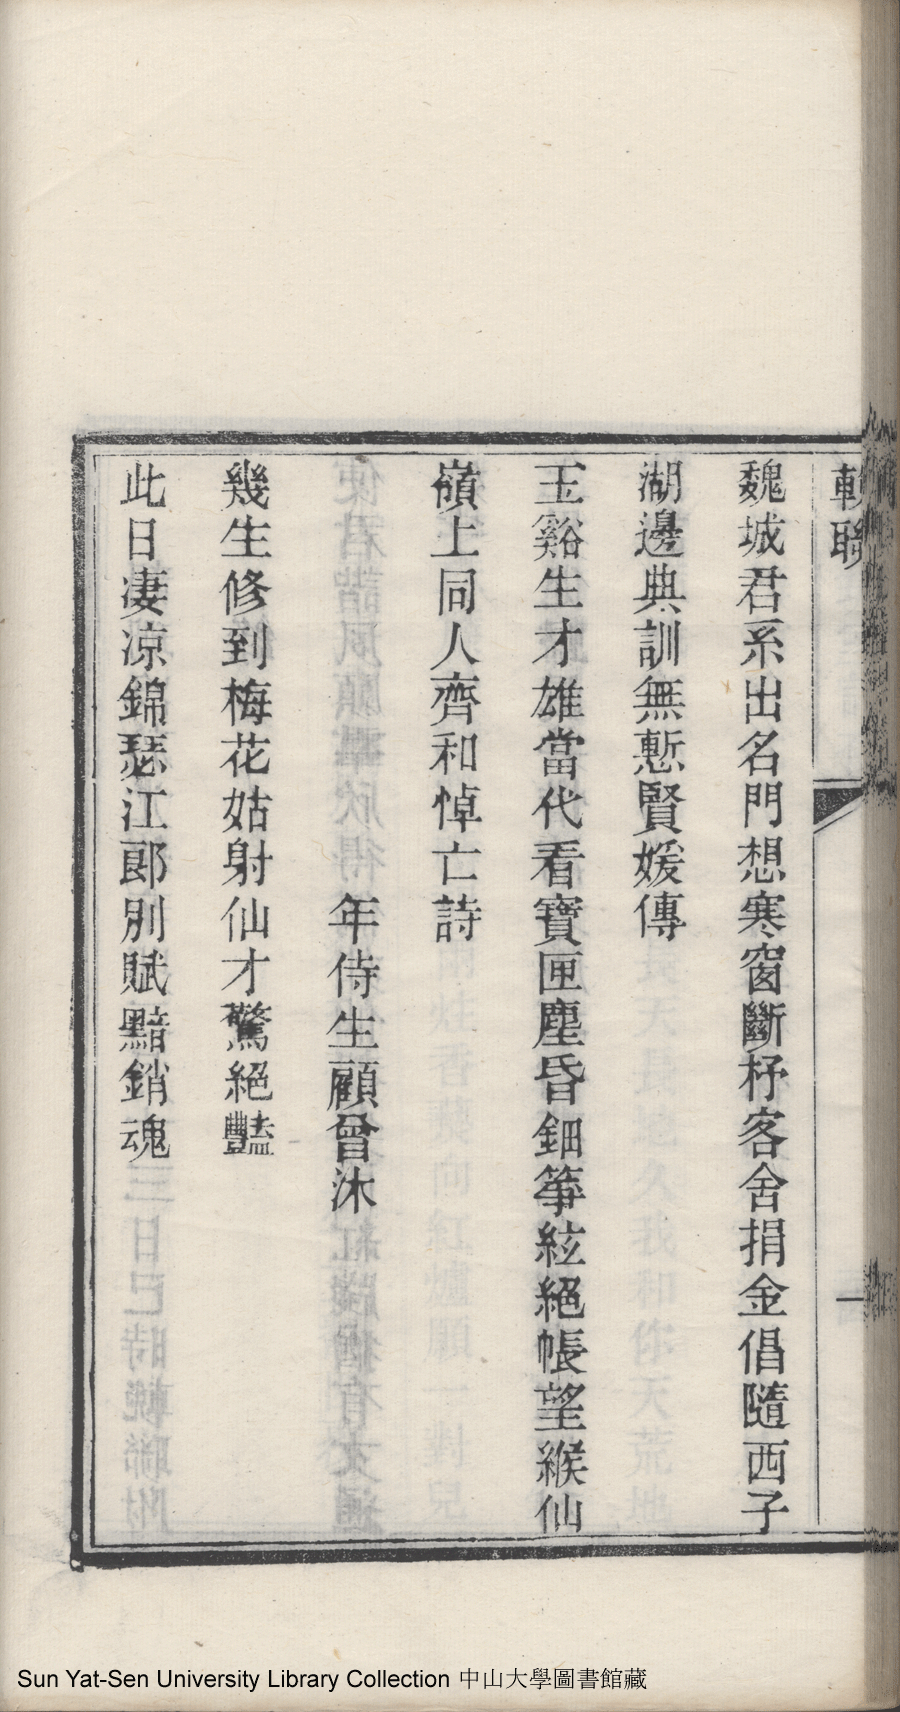 輓聯
一
魏城君系出名門想寒窗斷杼客舍捐金倡隨西子
湖邊典訓無慙賢媛傳
玉谿生才雄當代看寶匣塵昏鈿箏絃絕帳望緱仙
嶺上同人齊和悼亡詩
年侍生顧曾沐
幾生修到梅花姑射仙才驚絕豔
此日凄凉錦瑟江郎別賦黯銷魂
Sun Yat-Sen University Library Collection 中山大學圖書館藏